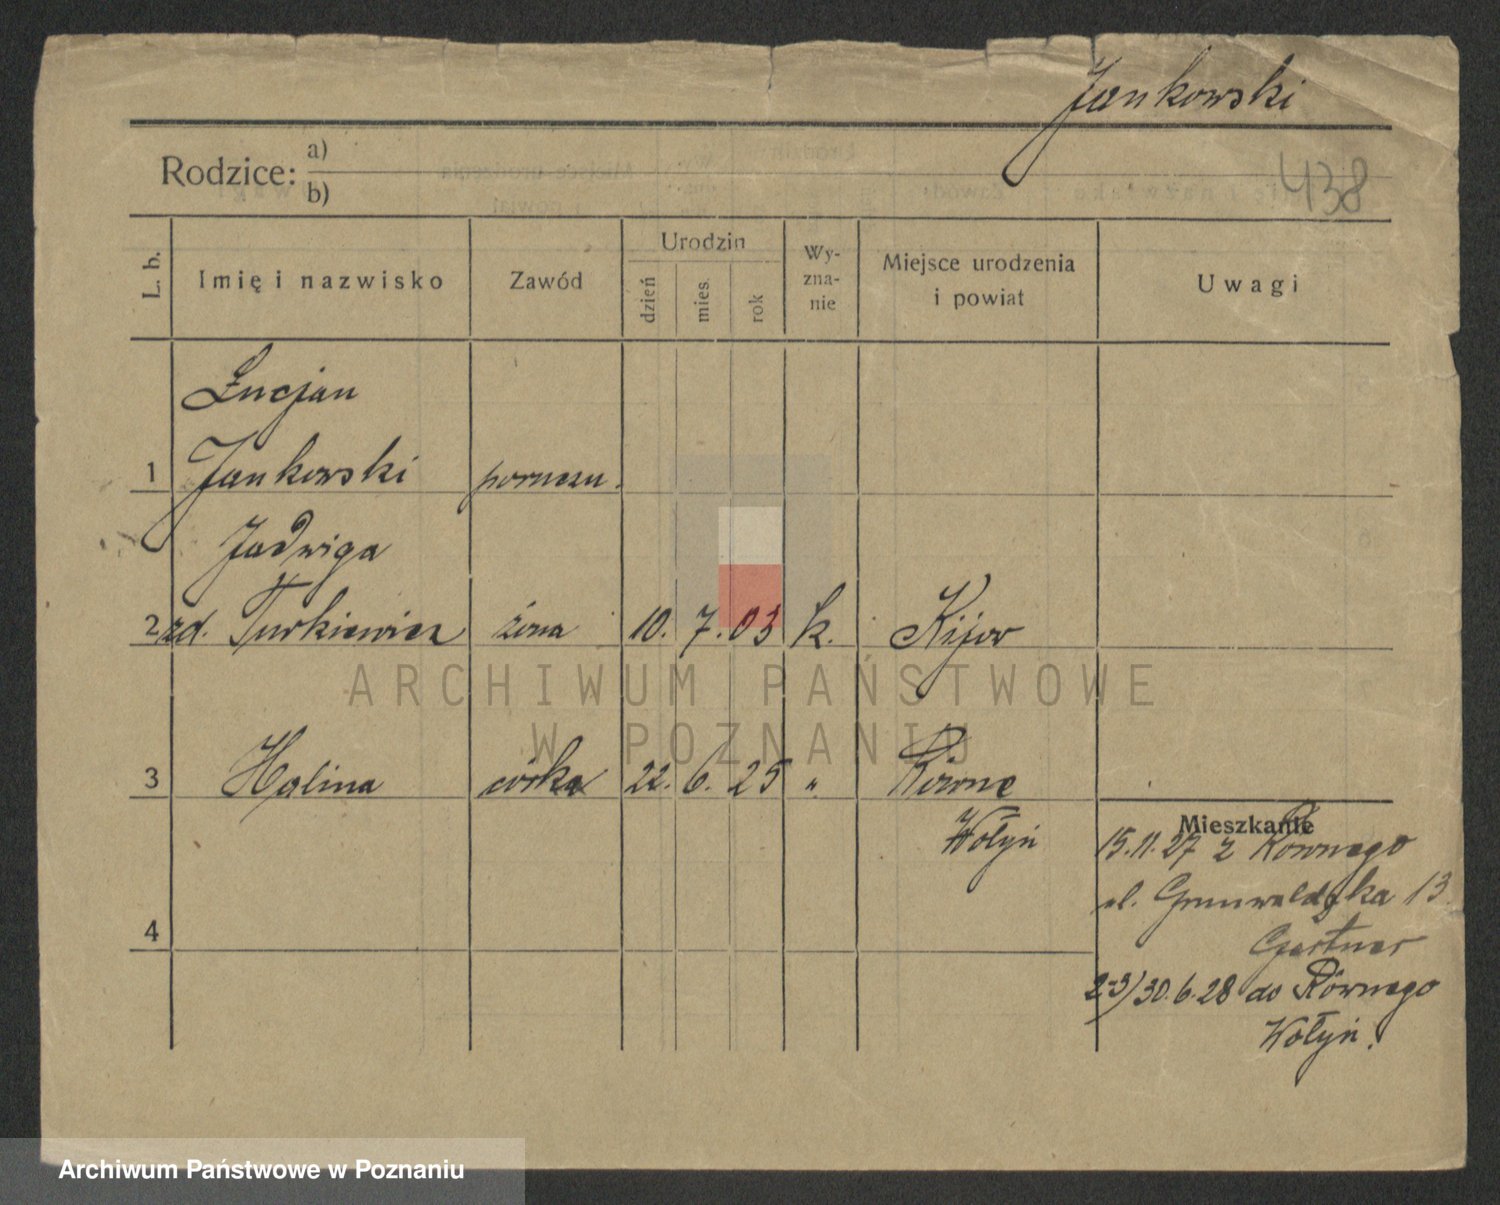 Jankowski
438
Rodzice: a)
b)
L. b.
Imię i nazwisko
Zawód
Urodzin
dzień
mies.
rok
Wy-
zna-
nie
Miejsce urodzenia
i powiat
Uwagi
Łucjan
1 Jankowski poruczn.
Jadwiga
2 zd. Turkiewicz żona 10. 7. 03 k. Kijów
3 Halina córka 22. 6. 25 " Równe
Wołyń
Mieszkanie
15.11.27 z Równego
ul. Grunwaldzka 13
Gertner
4
2-3/30.6.28 do Równego
Wołyń.
ARCHIWUM PAŃSTWOWE
W POZNANIU
Archiwum Państwowe w Poznaniu